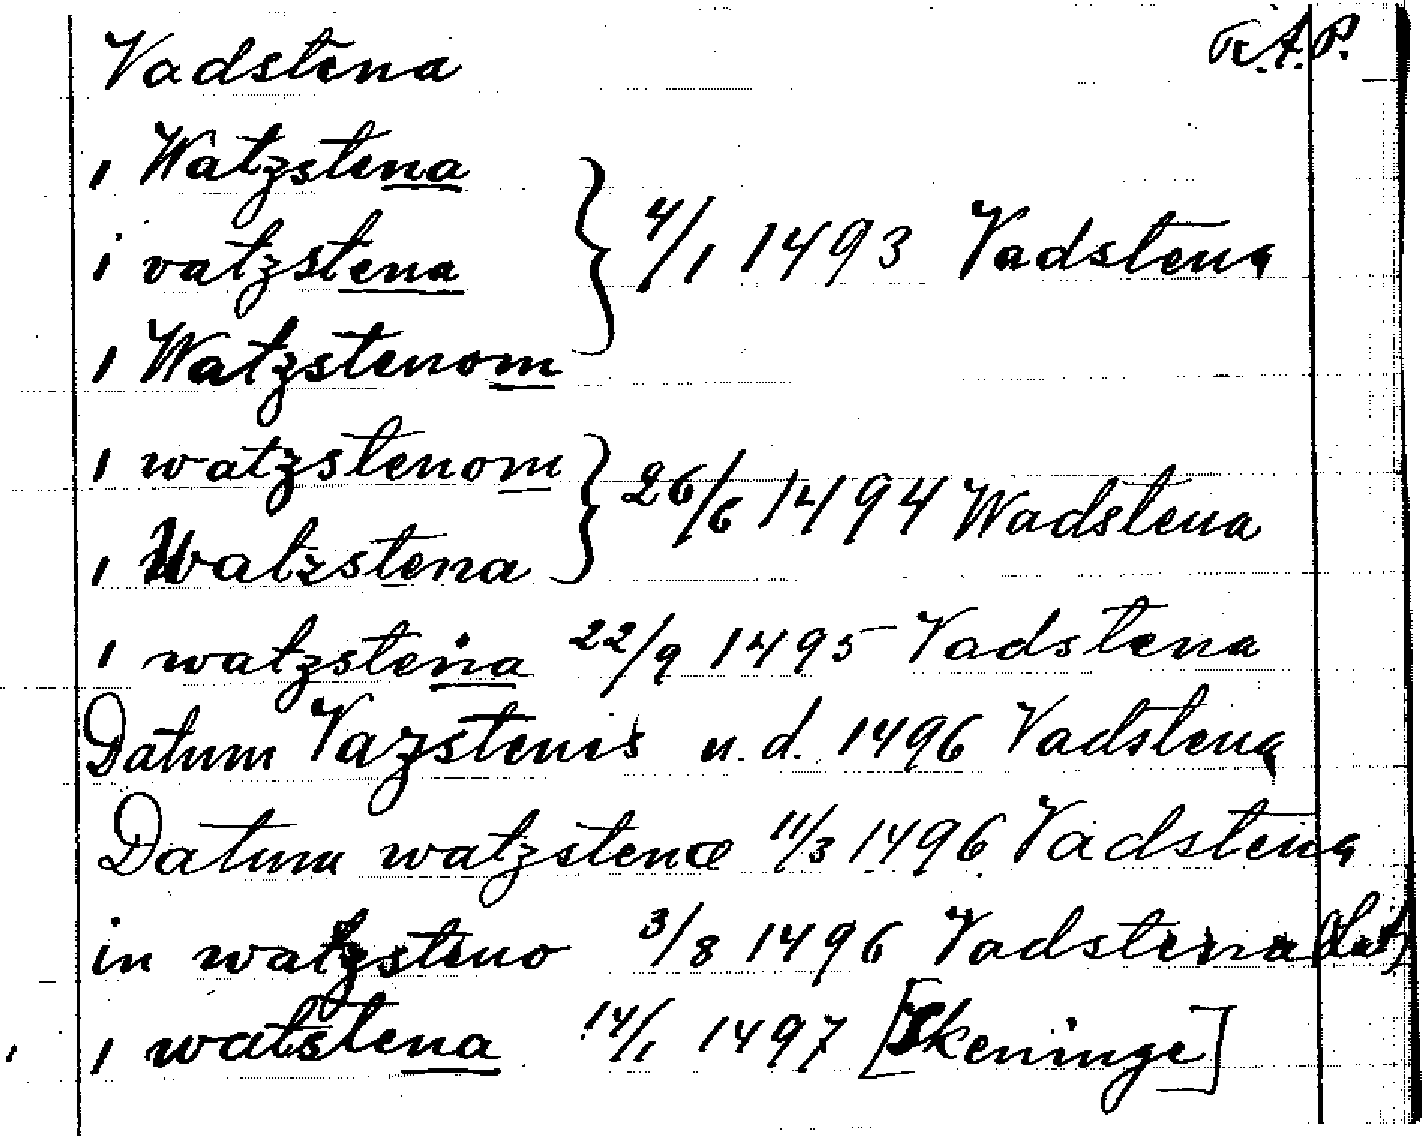 Vadstena R.A.P.
i Watzstena
i vatzstena } 4/1 1493 Vadstena
i Watzstenom
i watzstenom } 26/6 1494 Wadstena
i Watzstena
i watzstena 22/9 1495 Vadstena
Datum Vazstenis u.d. 1496 Vadstena
Datum watzstenæ 11/3 1496 Vadstena
in watzsteno 3/8 1496 Vadstena (lat)
i watstena 14/1 1497 [Skeninge]